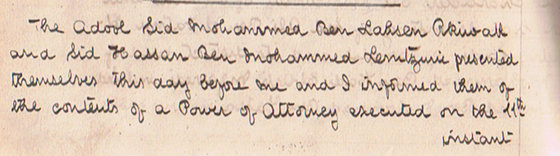 The Adool Sid Mohammed Ben Lahsen Rkiwak
and Sid Hassan Ben Mohammed Lemtzurie presented
themselves this day before me and I informed them of
the contents of a Power of Attorney executed on the 11th
instant